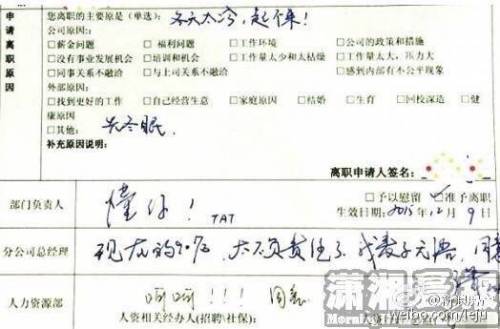 申请离职原因
您离职的主要原是(单选): 冬天太冷,起不来!
公司原因:
□薪金问题 □福利问题 □工作环境 □公司的政策和措施
□没有事业发展机会 □培训和机会 □工作量太少和太枯燥 □工作量太大,压力大
□同事关系不融洽 □与上司关系不融洽 □感到内部有不公平现象
外部原因:
□找到更好的工作 □自己经营生意 □家庭原因 □结婚 □生育 □回校深造 □健
康原因
□其他: 去冬眠.
补充原因说明:
离职申请人签名:
部门负责人 懂你! TAT □予以慰留 ☑准予离职
生效日期: 2015.12月9日
分公司总经理 现在的90后,太不负责任了,我表示无语,同意
人力资源部 呵呵!!! 同意
人资相关经办人(招聘\社保):
潇湘晨报
weibo.com/leju